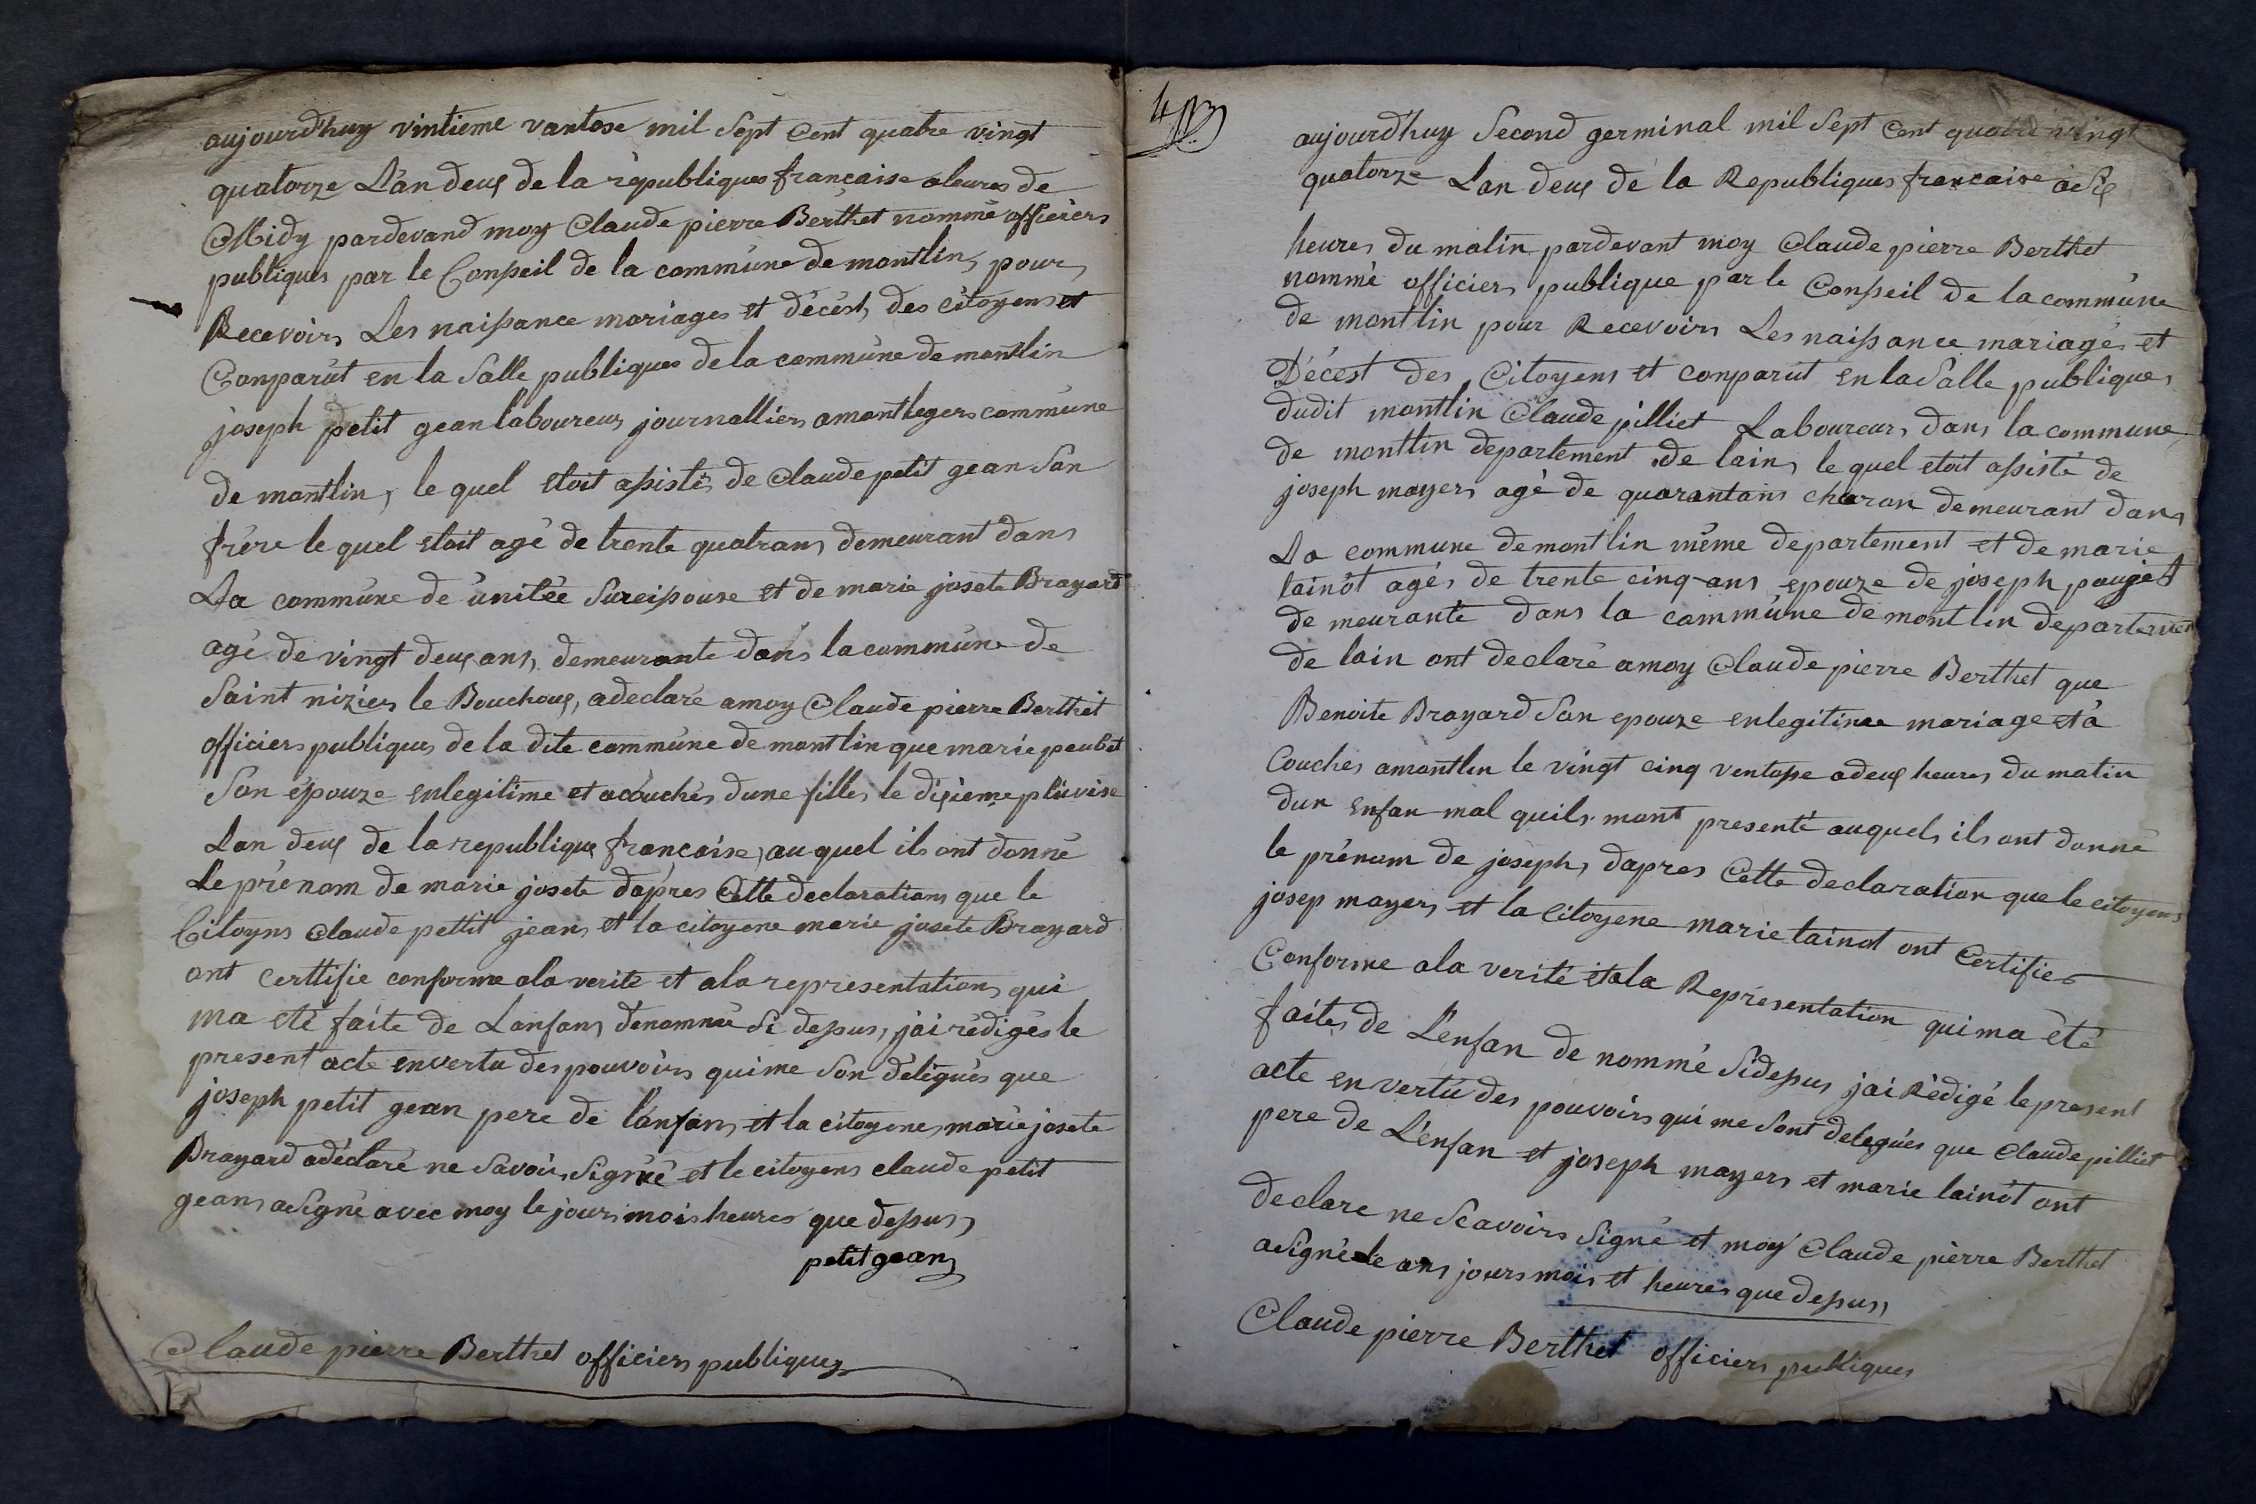 aujourd'huy vintieme vantose mil sept cent quatre vingt
quatorze L'an deux de la républiques française a leures de
Midy pardevand moy Claude pierre Berthet nommé officiers
publiques par le Conseil de la commune de montlin, pour
Recevoirs Les naissance mariages et décést, des citoyens et
Conparut en la Salle publiques de la commune de montlin
joseph petit gean laboureur journalliers a montlegers commune
de montlin, le quel etoit assistés de Claude petit gean Son
frére le quel etoit agé de trente quatrans demeurant dans
La commune de unitée Sureisouse et de marie josete Brayard
agé de vingt deux ans, demeurante dans la commune de
Saint niziers le Bouchoux, a declaré a moy Claude pierre Berthet
officiers publiques de la dite commune de montlin que marie peubet
Son épouze en legitime et acouchés dune filles le dixieme pluvise
Lan deux de la republique française, au quel ils ont donné
Le prénom de marie josete dapres Cette declarations que le
Citoyns Claude pettit jean, et la citoyene marie josete Brayard
ont certtifie conforme ala verite et ala representations qui
ma eté faite de Lanfans denommé Si dessus, j'ai redigés le
present acte en vertu des pouvoirs qui me Son délegués que
joseph petit gean pere de lanfans et la citoyenes marie josete
Brayard a déclaré ne Savoirs Signéé et le citoyens claude petit
geans a Signé avec moy le jours mois heures que dessus,
petit geans
Claude pierre Berthet officiers publiques
4
aujourd'huy Second germinal mil Sept Cent quatre vingt
quatorze Lan deux de la Republiques francaise a Six
heures du matin pardevant moy Claude pierre Berthet
nommé officiers publique par le Conseil de la commune
de montlin pour Recevoirs Les naissance mariages et
Décést des Citoyens et conparut en la Salle publiques
dudit montlin Claude pilliet Laboureurs dans la commune
de montlin departement de lain, le quel etoit assisté de
joseph mayers agé de quarantans charon demeurant dans
La commune de montlin même departement et de marie
lainot agés de trente cinq-ans epouze de joseph paujet
de meurante dans la commune de montlin departemen
de lain ont declaré a moy Claude pierre Berthet que
Benoite Brayard Son epouze en legitimee mariage et a
Couchés a montlin le vingt cinq ventose a deux heures du matin
dun enfan mal quils mont presenté auquels ils ont donné
le prénom de josephs dapres Cette declaration que le citoyens
josep mayers et la Citoyene marie lainot ont Certifies
Conforme ala verité et ala Representation qui ma été
faites de L'enfan de nommé Sidessus j'ai Rédigé le present
acte en vertu des pouvoirs qui me Sont delegués que Claude pilliet
pere de L'enfan et joseph mayers et marie lainot ont
declare ne Scavoirs Signé et moy Claude pierre Berthet
a Signé le ans jours mois et heures que dessus,
Claude pierre Berthet officiers publiques